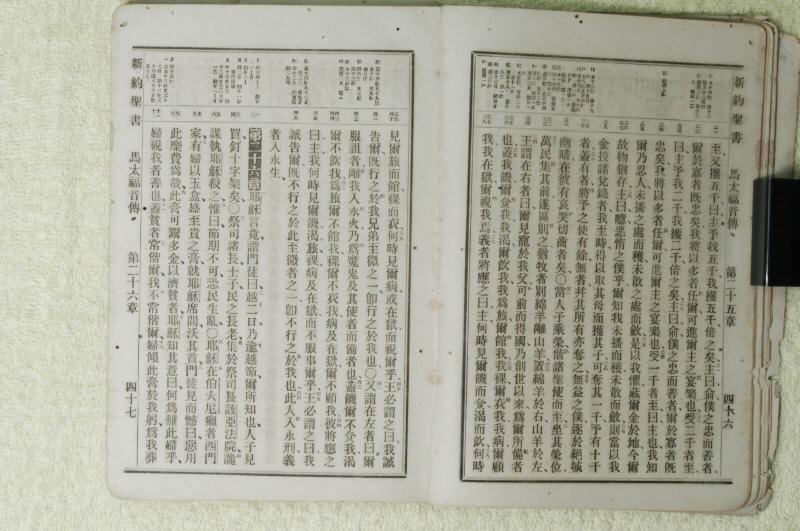 新約聖書 馬太福音傳 第二十五章 四十六
至又攜五千曰主予我五千我獲五千倍之矣主曰俞僕之忠而善者
爾於寡者既忠矣我將以多者任爾可進爾主之宴樂也受二千者至
曰主予我二千我獲二千倍之矣主曰俞僕之忠而善者爾於寡者既
忠矣我將以多者任爾可進爾主之宴樂也受一千者至曰主也我知
爾乃忍人未播之處而穫未散之處而斂是以我懼藏爾金於地今爾
故物猶存主曰噫惡惰之僕乎爾知我未播而穫未散而斂則當以我
金投諸兌錢者我至時得以取其母而獲其子可奪其一千予有十千
者蓋有者將予之使有餘無者并其所有亦奪之無益之僕逐於絕域
幽暗在彼有哀哭切齒者矣〇當人子乘榮偕諸聖使而王坐其榮位
萬民集其前遂區別之猶牧者別綿羊離山羊置綿羊於右山羊於左
王謂在右者曰爾見寵於我父可前而得國乃創世以來爲爾所備者
也蓋我饑爾食我我渴爾飲我我爲旅爾館我我裸爾衣我我病爾顧
我我在獄爾視我焉義者將應之曰主何時見爾饑而食渴而飲何時
見爾旅而館裸而衣何時見爾病或在獄而視爾乎王必謂之曰我誠
告爾既行之於我兄弟至微之一卽行之於我也〇又謂在左者曰爾
服詛者離我入永火乃爲魔鬼及其使者而備者也蓋饑爾不食我渴
爾不飲我爲旅爾不館我裸爾不衣我病及在獄爾不顧我彼將應之
曰主我何時見爾饑渴旅裸病及在獄而不服事爾乎王必謂之曰我
誠告爾既不行之於此至微者之一卽不行之於我也此人入永刑義
者入永生
第二十六章耶穌言竟謂門徒曰越二日乃逾越節爾所知也人子見
賣釘十字架矣〇祭司諸長士子民之長老集於祭司長該亞法院詭
謀執耶穌殺之惟曰節期不可恐民生亂〇耶穌在伯大尼癩者西門
家有婦以玉盒盛至貴之膏就耶穌席間沃其首門徒見而憾曰惡用
此糜費爲哉此膏可鬻多金以濟貧者耶穌知其意曰何爲難此婦乎
婦視我者善也蓋貧者常偕爾我不常偕爾婦傾此膏於我躬爲我葬
新約聖書 馬太福音傳 第二十六章 四十七